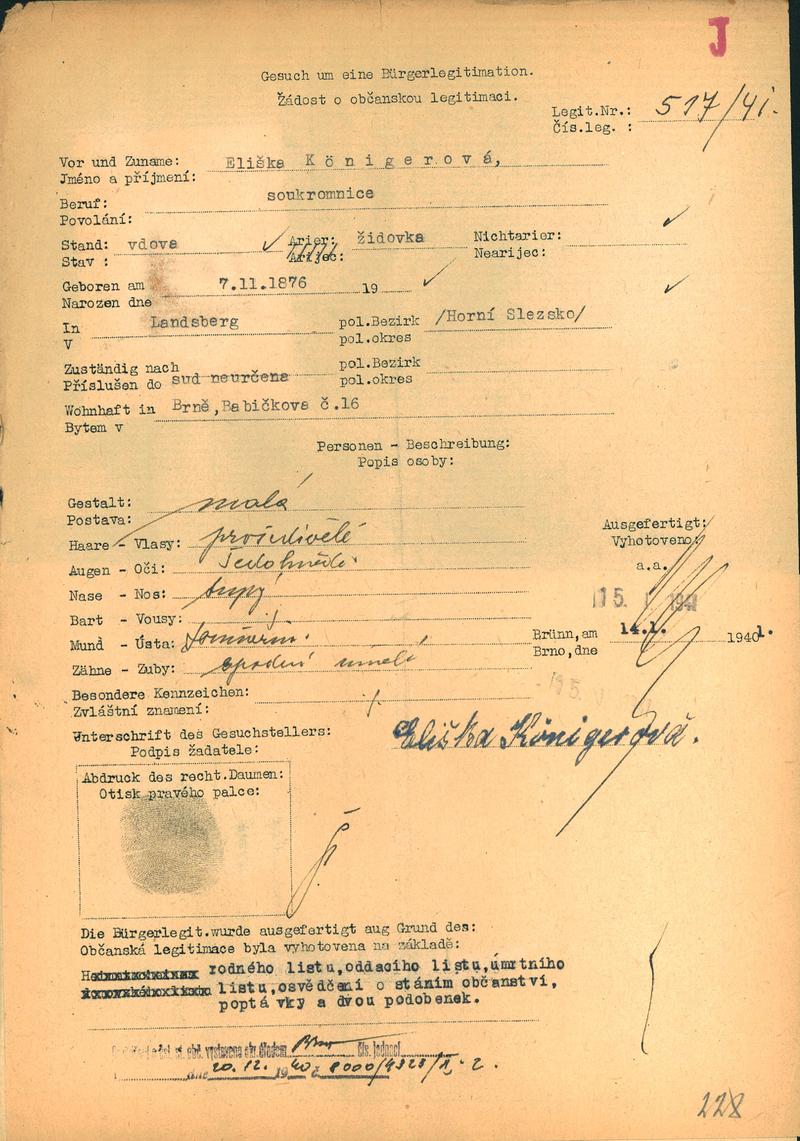 J
Gesuch um eine Bürgerlegitimation.
Žádost o občanskou legitimaci.
Legit.Nr.: 517/41.
Čís.leg. :
Vor und Zuname: Eliška Königerová,
Jméno a příjmení:
Beruf: soukromnice
Povolání:
Stand: vdova Arier: židovka Nichtarier:
Stav : Arijec: Nearijec:
Geboren am 7.11.1876 19
Narozen dne
In Landsberg pol.Bezirk /Horní Slezsko/
V pol.okres
Zuständig nach pol.Bezirk
Příslušen do sud neurčena pol.okres
Wohnhaft in Brně,Babičkova č.16
Bytem v
Personen - Beschreibung:
Popis osoby:
Gestalt: malá
Postava:
Haare - Vlasy: prošedivělé
Augen - Oči: šedohnědé.
Nase - Nos: tupý
Bart - Vousy:
Mund - Ústa:
Zähne - Zuby: spodní umělé
Ausgefertigt:
Vyhotoveno:
a.a.
15. I. 1941
Brünn,am 14.1. 1940 1.
Brno,dne
Besondere Kennzeichen:
Zvláštní znamení:
Unterschrift des Gesuchstellers: Eliška Königerová.
Podpis žadatele:
Abdruck des recht.Daumen:
Otisk pravého palce:
Die Bürgerlegit.wurde ausgefertigt aug Grund des:
Občanská legitimace byla vyhotovena na základě:
rodného listu,oddacího listu,úmrtního
listu,osvědčení o stáním občanství,
poptávky a dvou podobenek.
vystaveno okr.úřadem Brno čís. jednací
dne 20.12. 1940 č 8000/4328/II-2.
228